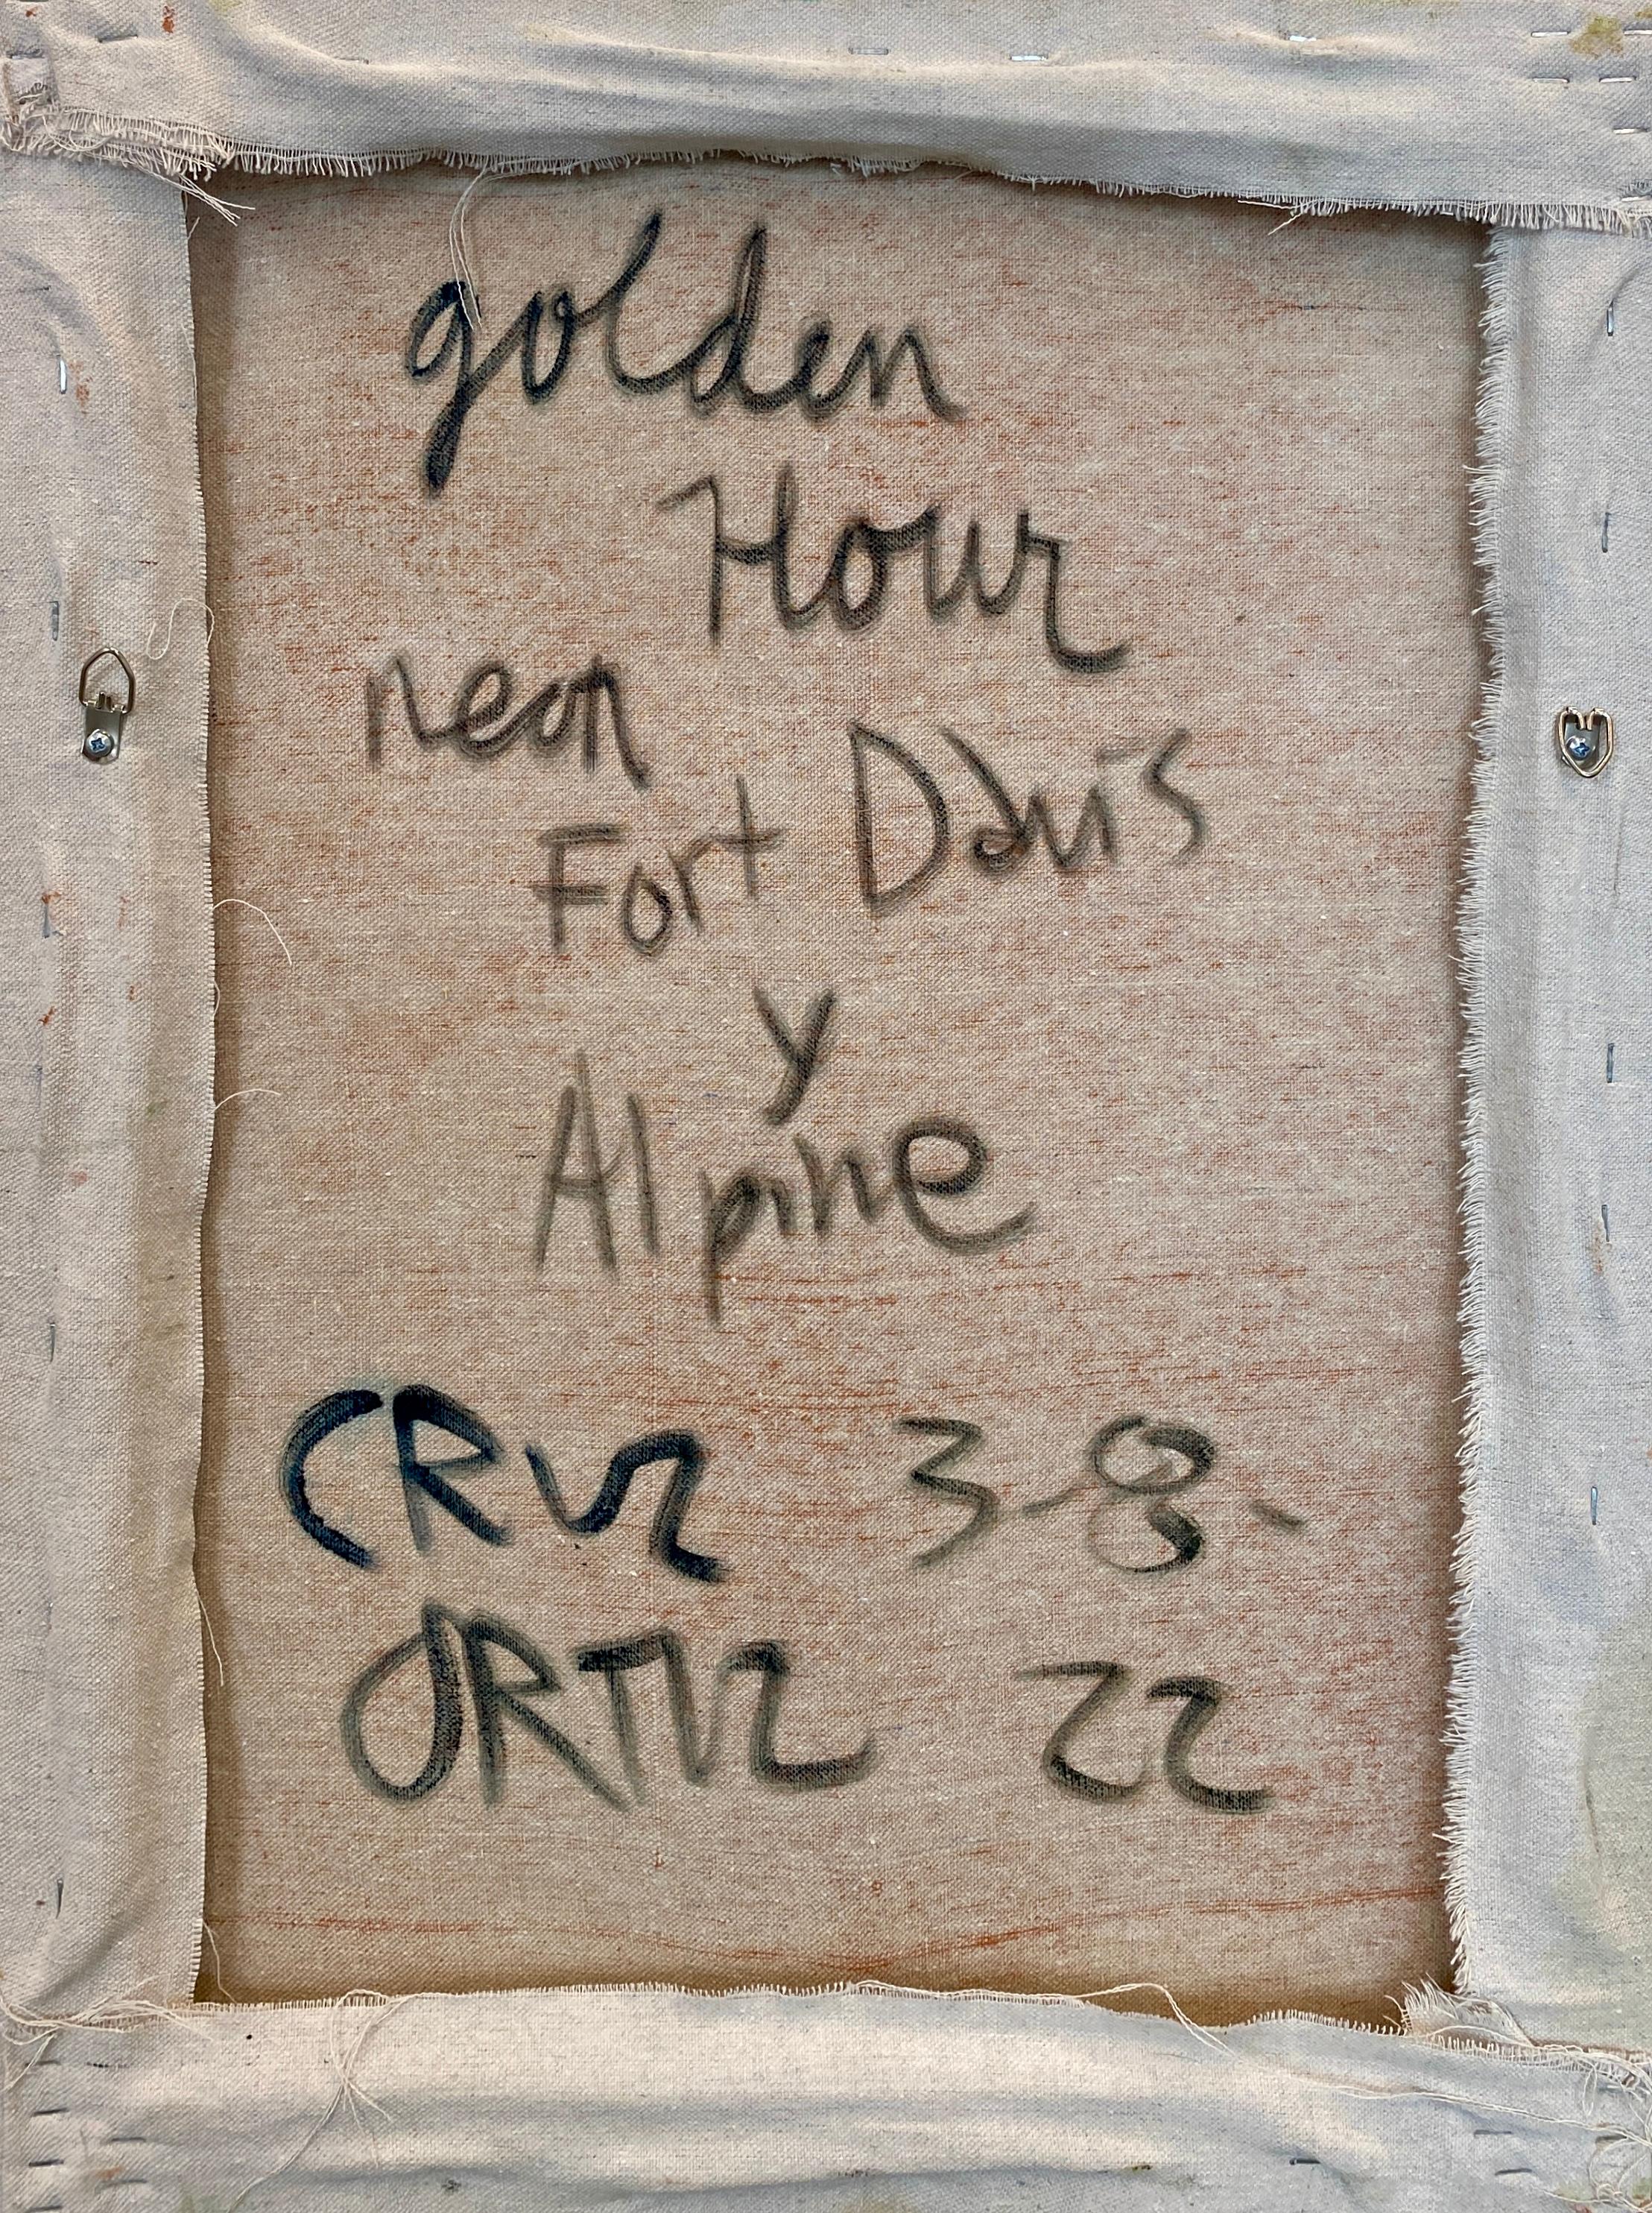 golden
Hour
near
Fort Davis
y
Alpine
CRUZ 3-8-
ORTIZ 22